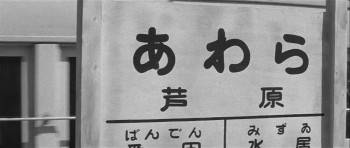 あわら
芦原
ばんでん みずゐ
番田 水居